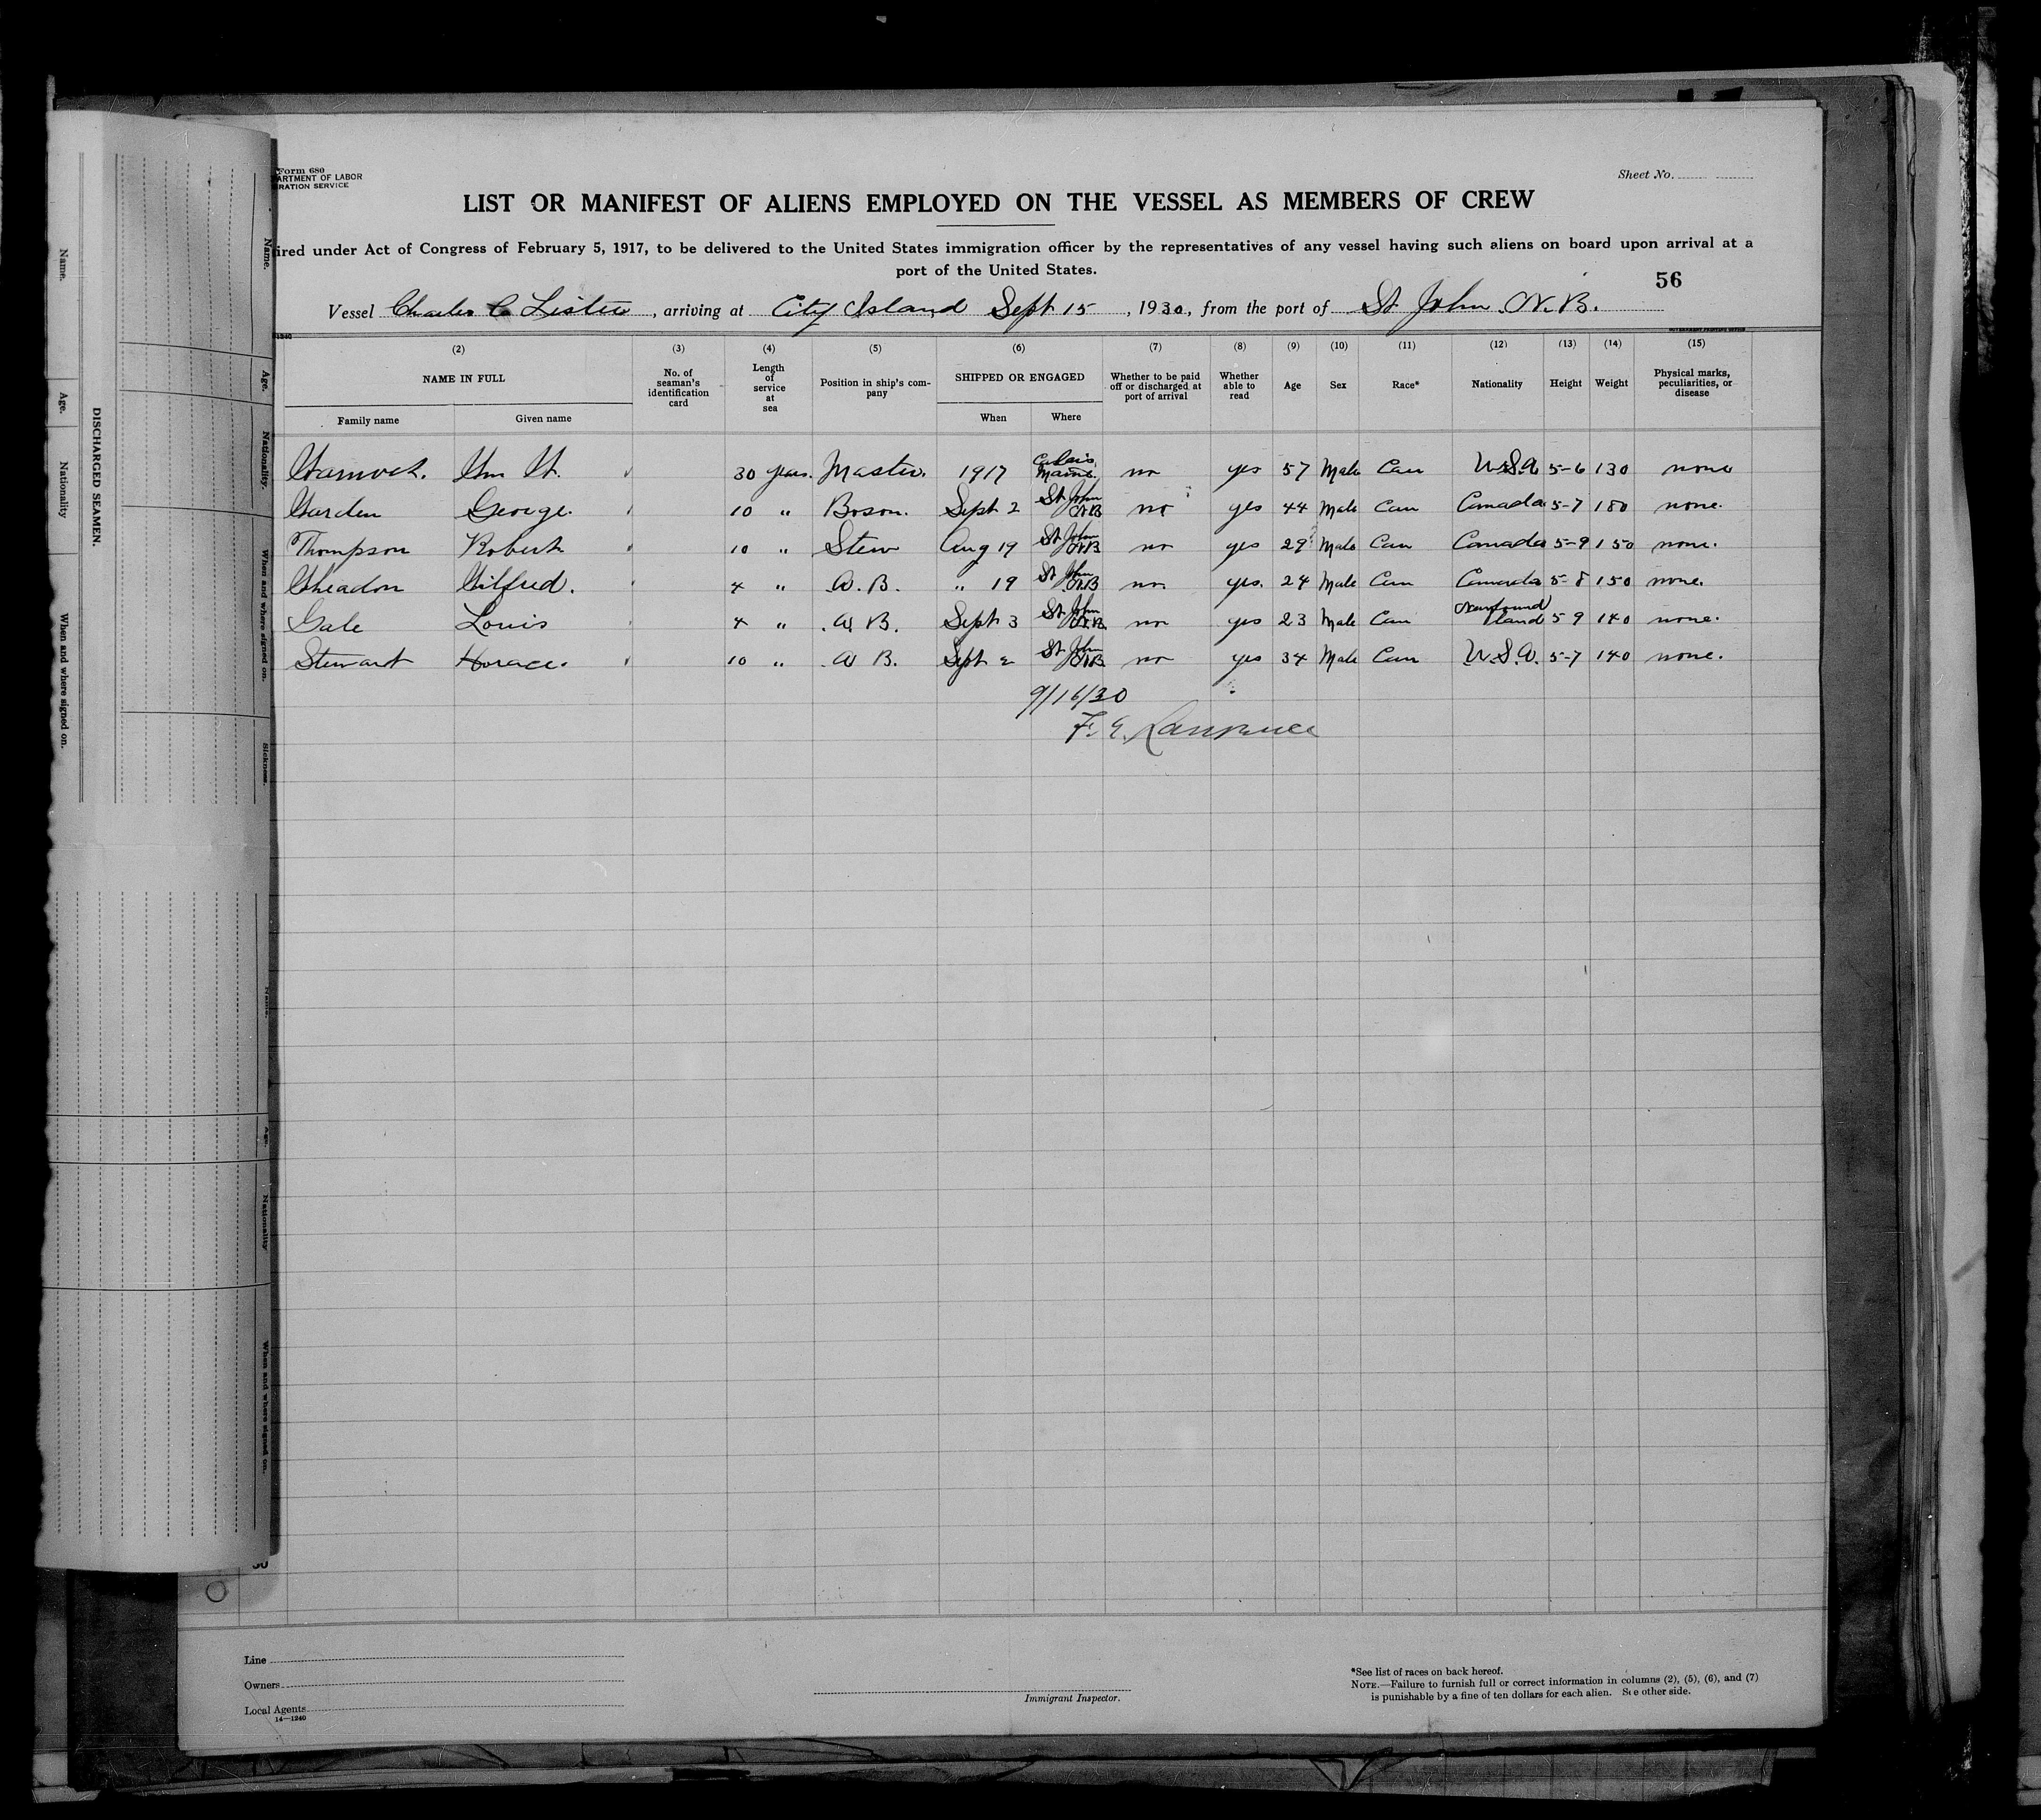 Form 680
ARTMENT OF LABOR
RATION SERVICE
Sheet No.
LIST OR MANIFEST OF ALIENS EMPLOYED ON THE VESSEL AS MEMBERS OF CREW
ired under Act of Congress of February 5, 1917, to be delivered to the United States immigration officer by the representatives of any vessel having such aliens on board upon arrival at a
port of the United States.
56
Vessel Charles C Lister, arriving at City Island Sept 15, 1930, from the port of St John N.B.
(2) (3) (4) (5) (6) (7) (8) (9) (10) (11) (12) (13) (14) (15)
NAME IN FULL
Family name
Given name
No. of seaman's identification card
Length of service at sea
Position in ship's company
SHIPPED OR ENGAGED
When
Where
Whether to be paid off or discharged at port of arrival
Whether able to read
Age
Sex
Race*
Nationality
Height
Weight
Physical marks, peculiarities, or disease
Wm 30 years. Master. 1917 Calais Maine. no yes 57 Male Can U.S.A 5-6 130 none
George. 10 " Boson. Sept 2 St John N.B no yes 44 Male Can Canada 5-7 180 none.
Thompson Robert 10 " Stew Aug 19 St John N.B no yes 29 Male Can Canada 5-9 150 none.
Wilfred. 4 " A.B. " 19 St John N.B no yes. 24 Male Can Canada 5-8 150 none.
Gale Louis 4 " A.B. Sept 3 St John N.B. no yes 23 Male Can Newfoundland 5 9 140 none.
Stewart Horace. 10 " A B. Sept 2 St John N.B no yes 34 Male Can U.S.A. 5-7 140 none.
9/16/30
F. E. Lawrence
DISCHARGED SEAMEN.
Name.
Age.
Nationality
When and where signed on.
Name.
Age.
Nationality.
When and where signed on.
Sickness.
Name.
Age.
Nationality
When and where signed on.
Line
Owners
Local Agents
14—1240
Immigrant Inspector.
*See list of races on back hereof.
NOTE.—Failure to furnish full or correct information in columns (2), (5), (6), and (7)
is punishable by a fine of ten dollars for each alien. See other side.